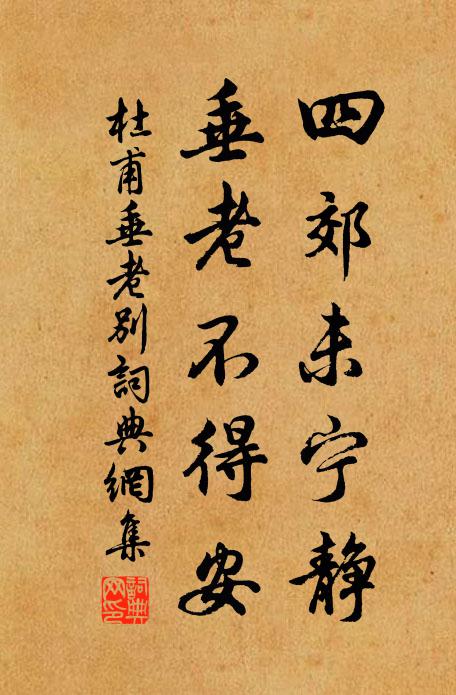 四郊未宁静
垂老不得安
杜甫垂老别词典網集
詞典
网印